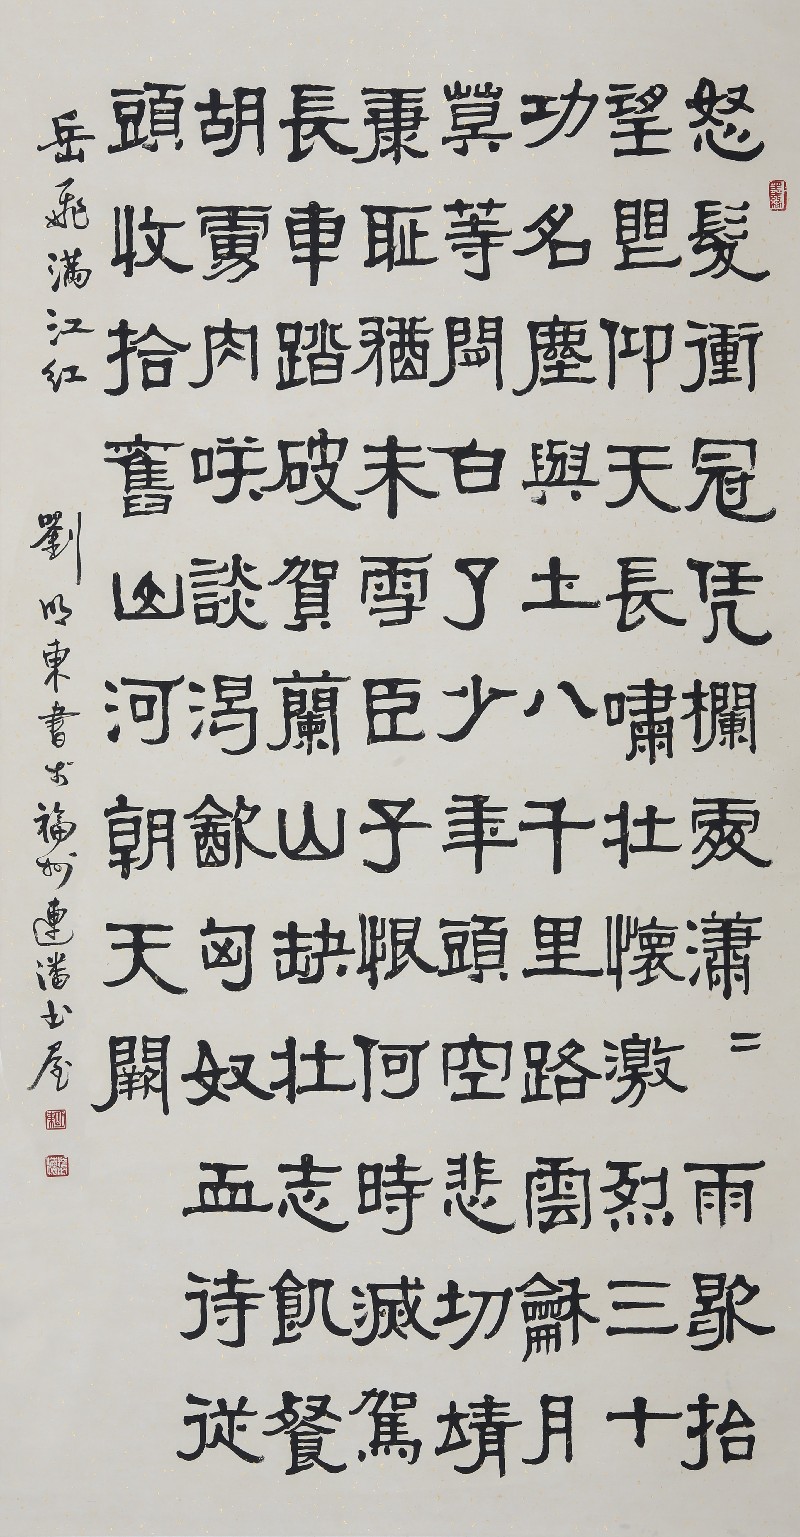 怒髮衝冠凭欄處瀟〻雨歇抬
望眼仰天長嘯壯懷激烈三十
功名塵與土八千里路雲龢月
莫等閒白了少年頭空悲切靖
康恥猶未雪臣子恨何時滅駕
長車踏破賀蘭山缺壯志飢餐
胡虜肉咲談渴飲匈奴血待從
頭收拾舊山河朝天闕
岳飛滿江红
劉明東書於福州連潘书屋